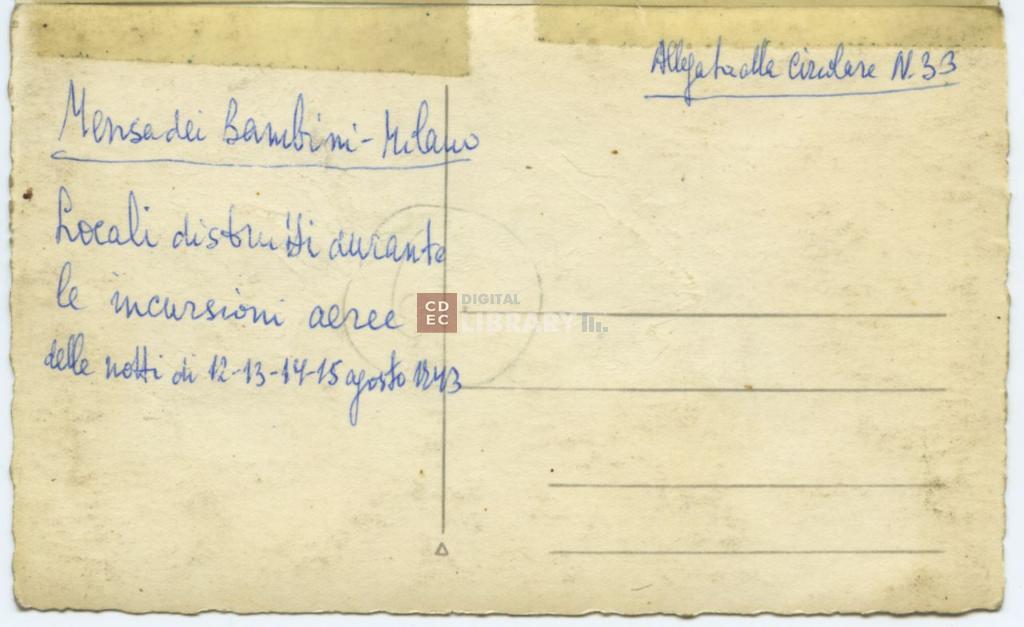 Allegata alla Circolare N. 33
Mensa dei Bambini - Milano
Locali distrutti durante
le incursioni aeree
delle notti di 12-13-14-15 agosto 1943
CD
EC
DIGITAL
LIBRARY